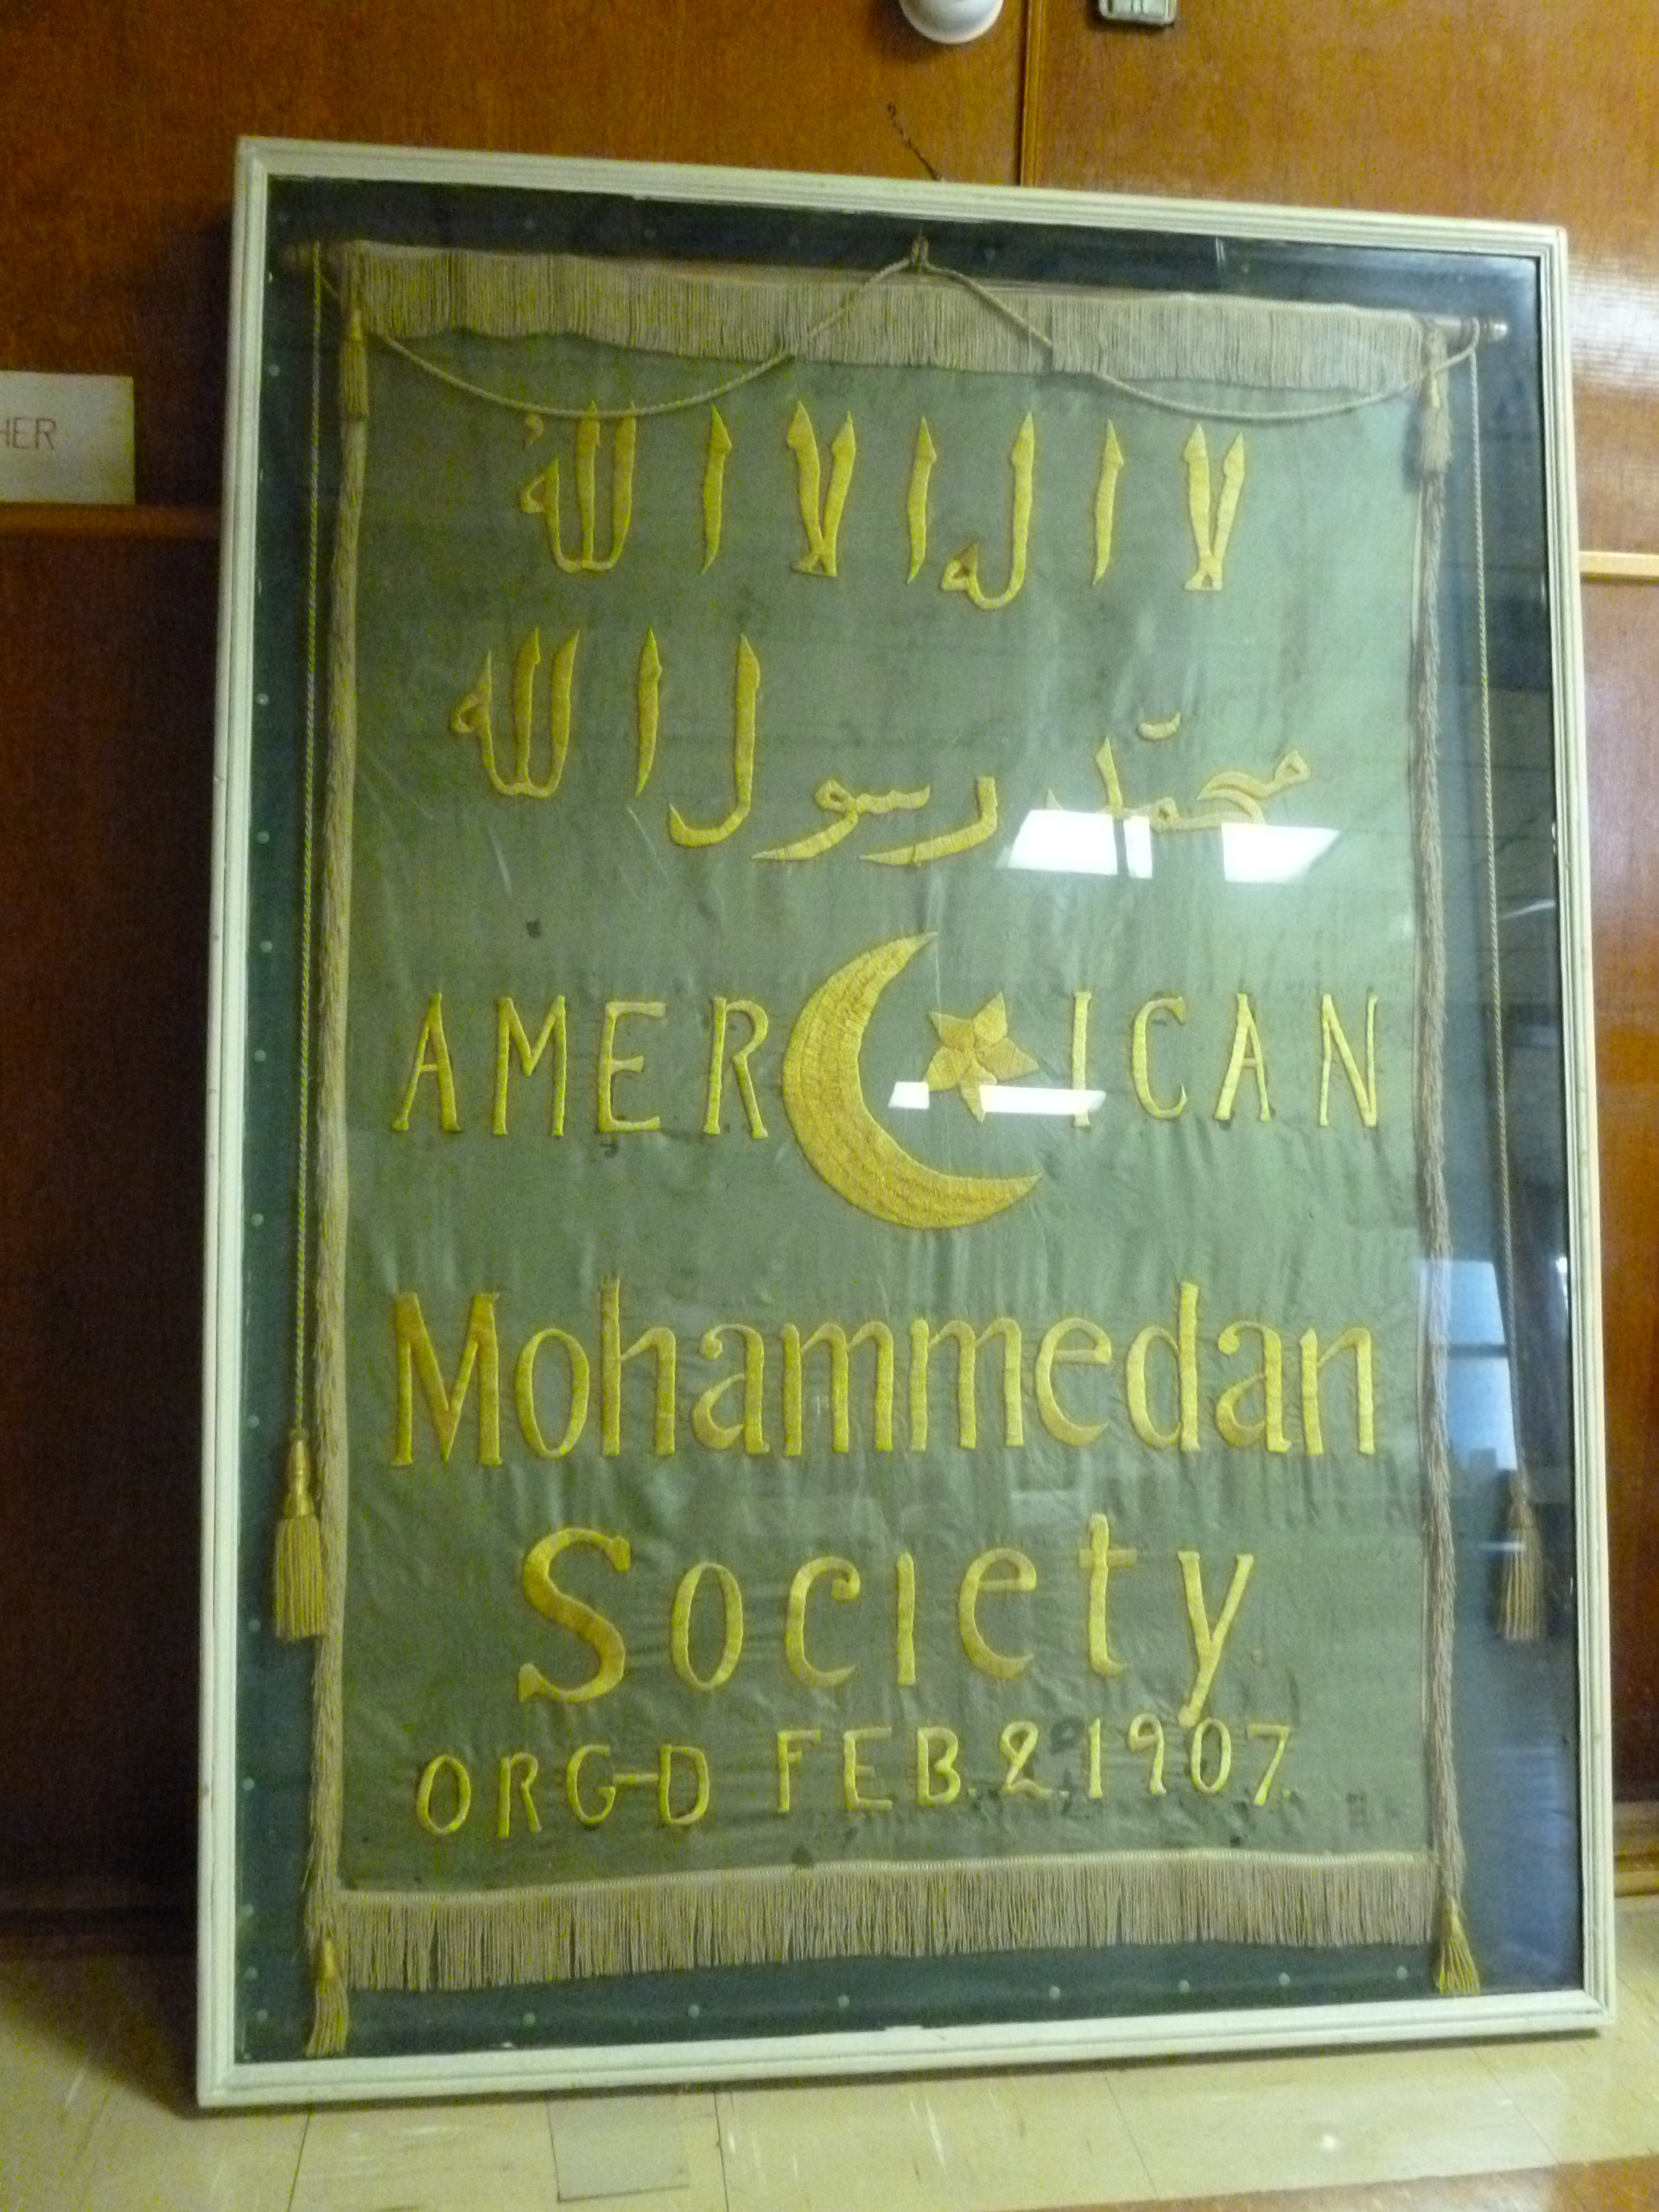 HER
لا اله الا الله
محمّد رسول الله
AMERICAN
Mohammedan
Society
ORG-D FEB. 2. 1907.